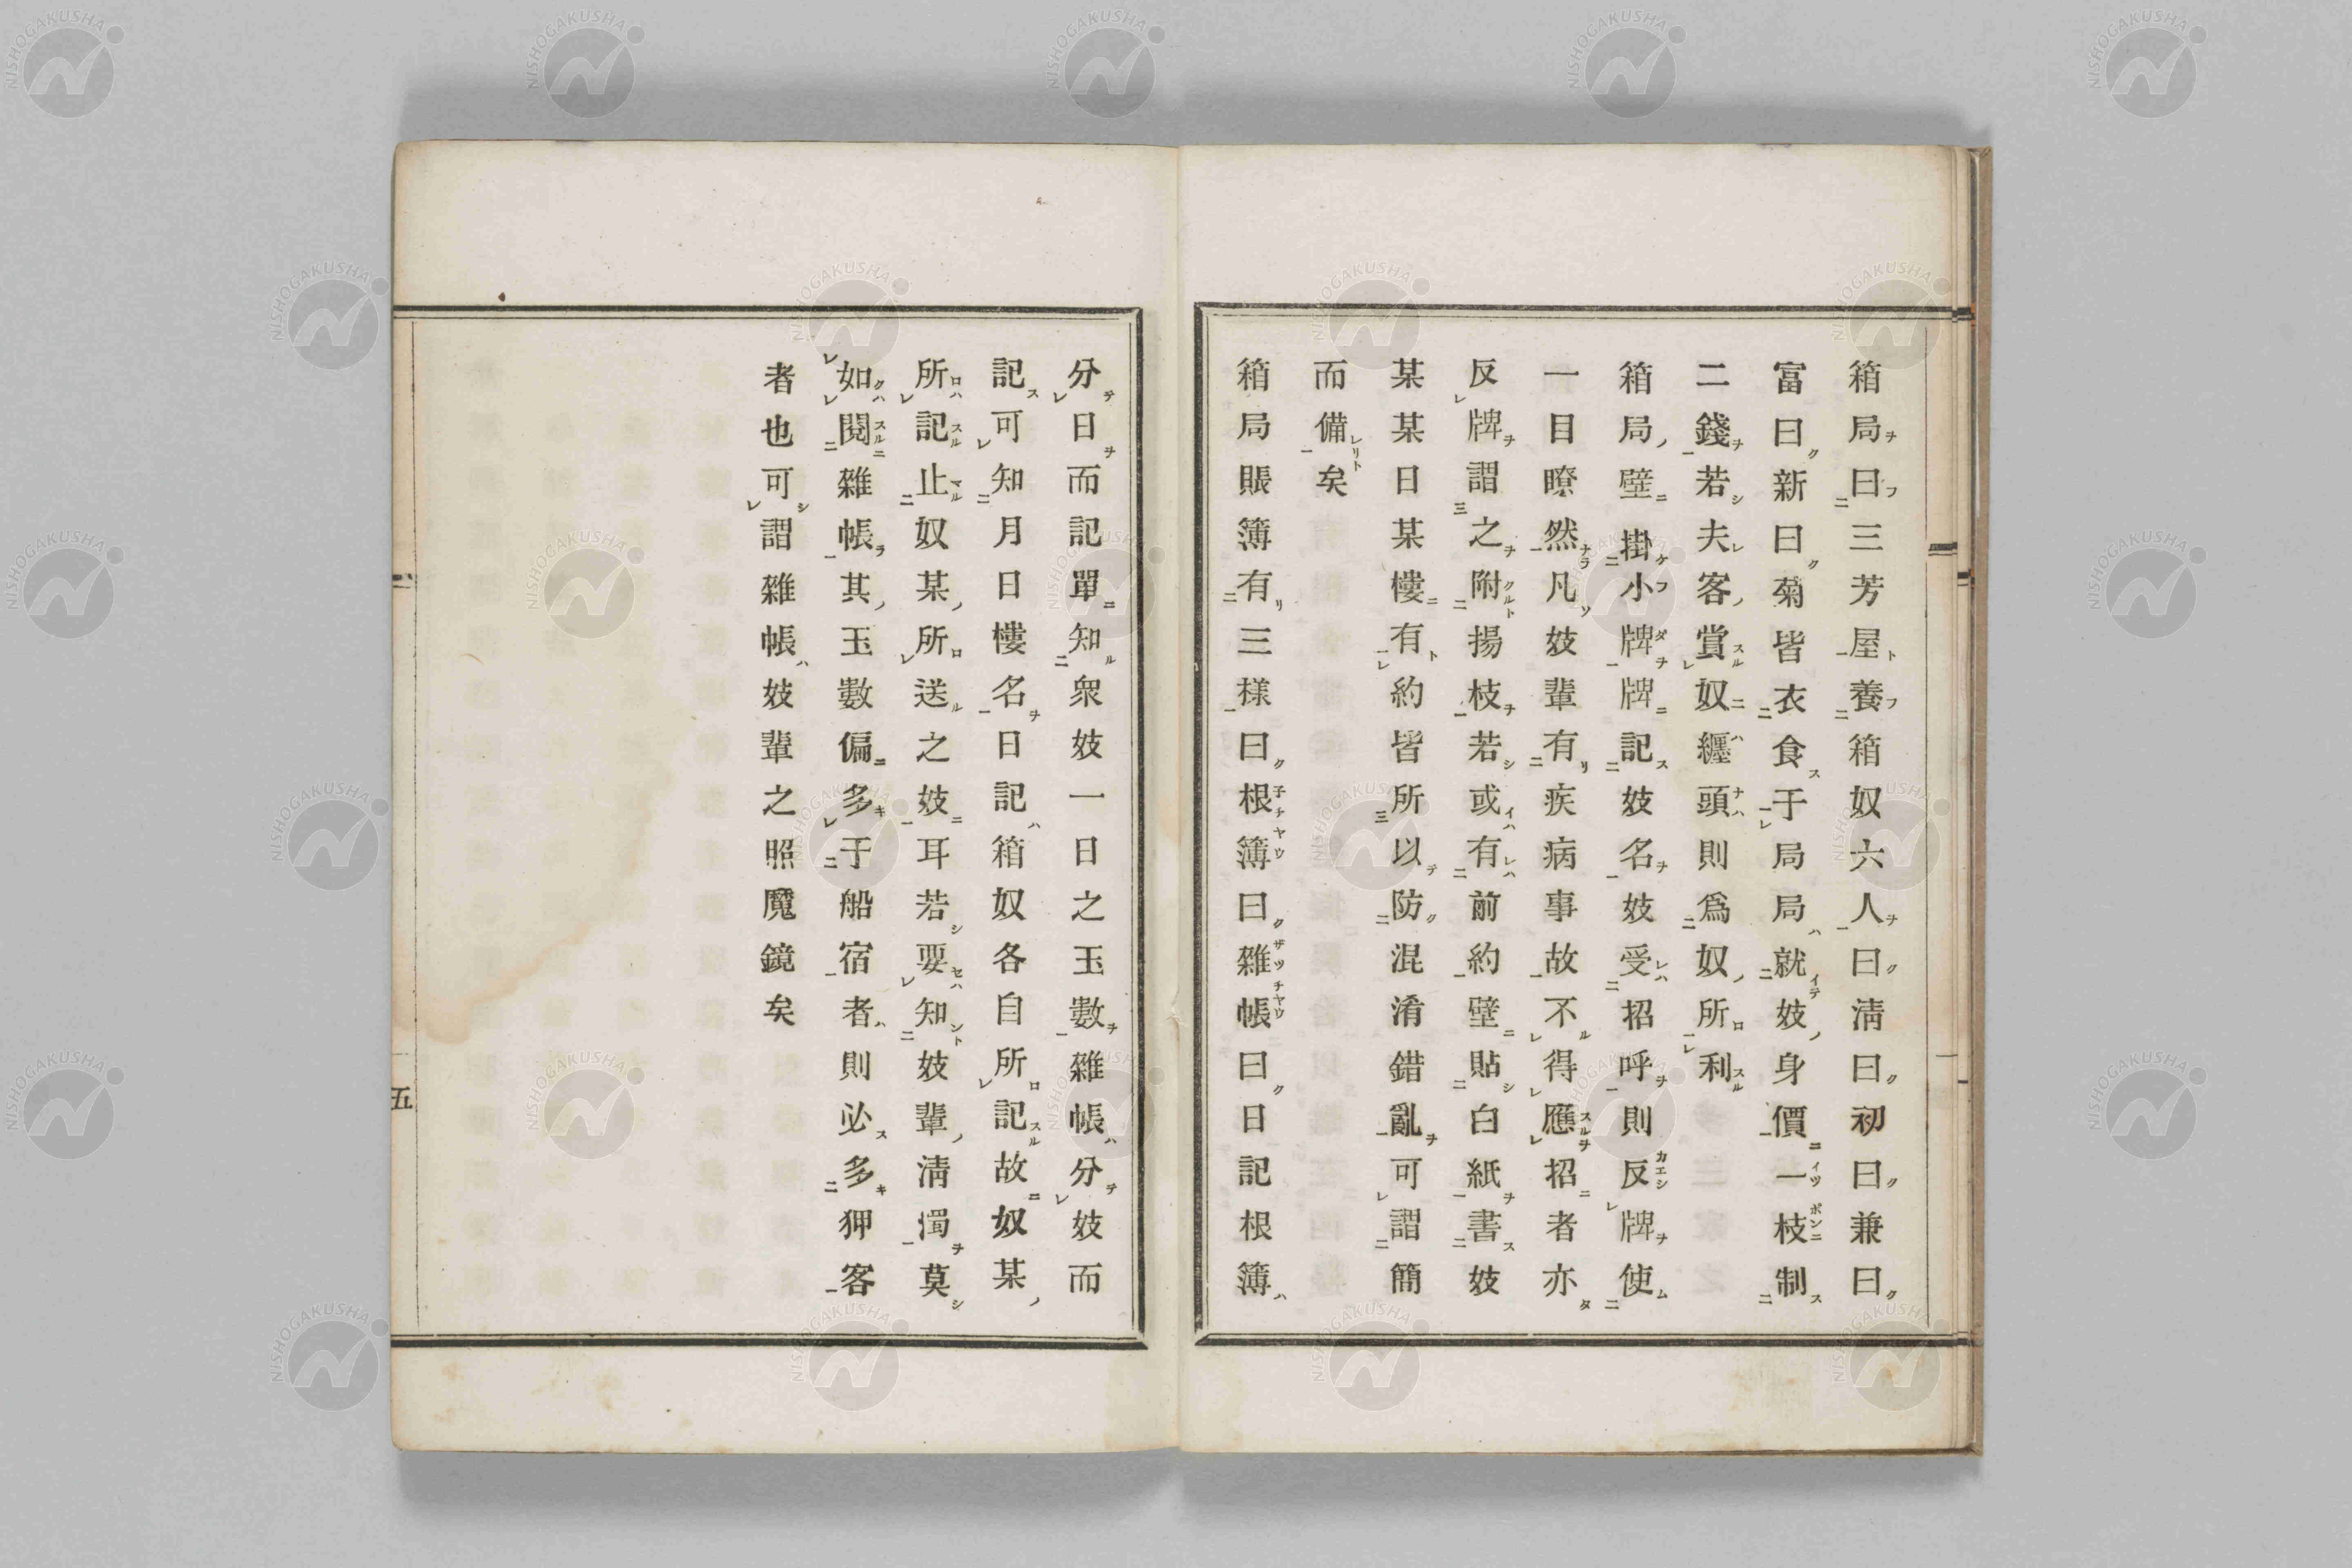 箱局曰三芳屋養箱奴六人曰清曰初曰兼曰
富曰新曰菊皆衣食于局局就妓身價一枝制
二錢若夫客賞奴纒頭則爲奴所利
箱局壁掛小牌牌記妓名妓受招呼則反牌使
一目瞭然凡妓輩有疾病事故不得應招者亦
反牌謂之附揚枝若或有前約壁貼白紙書妓
某某日某樓有約皆所以防混淆錯亂可謂簡
而備矣
箱局賬簿有三樣曰根簿曰雜帳曰日記根簿
分日而記單知衆妓一日之玉數雜帳分妓而
記可知月日樓名日記箱奴各自所記故奴某
所記止奴某所送之妓耳若要知妓輩清濁莫
如閱雜帳其玉數偏多于船宿者則必多狎客
者也可謂雜帳妓輩之照魔鏡矣
五
NISHOGAKUSHA